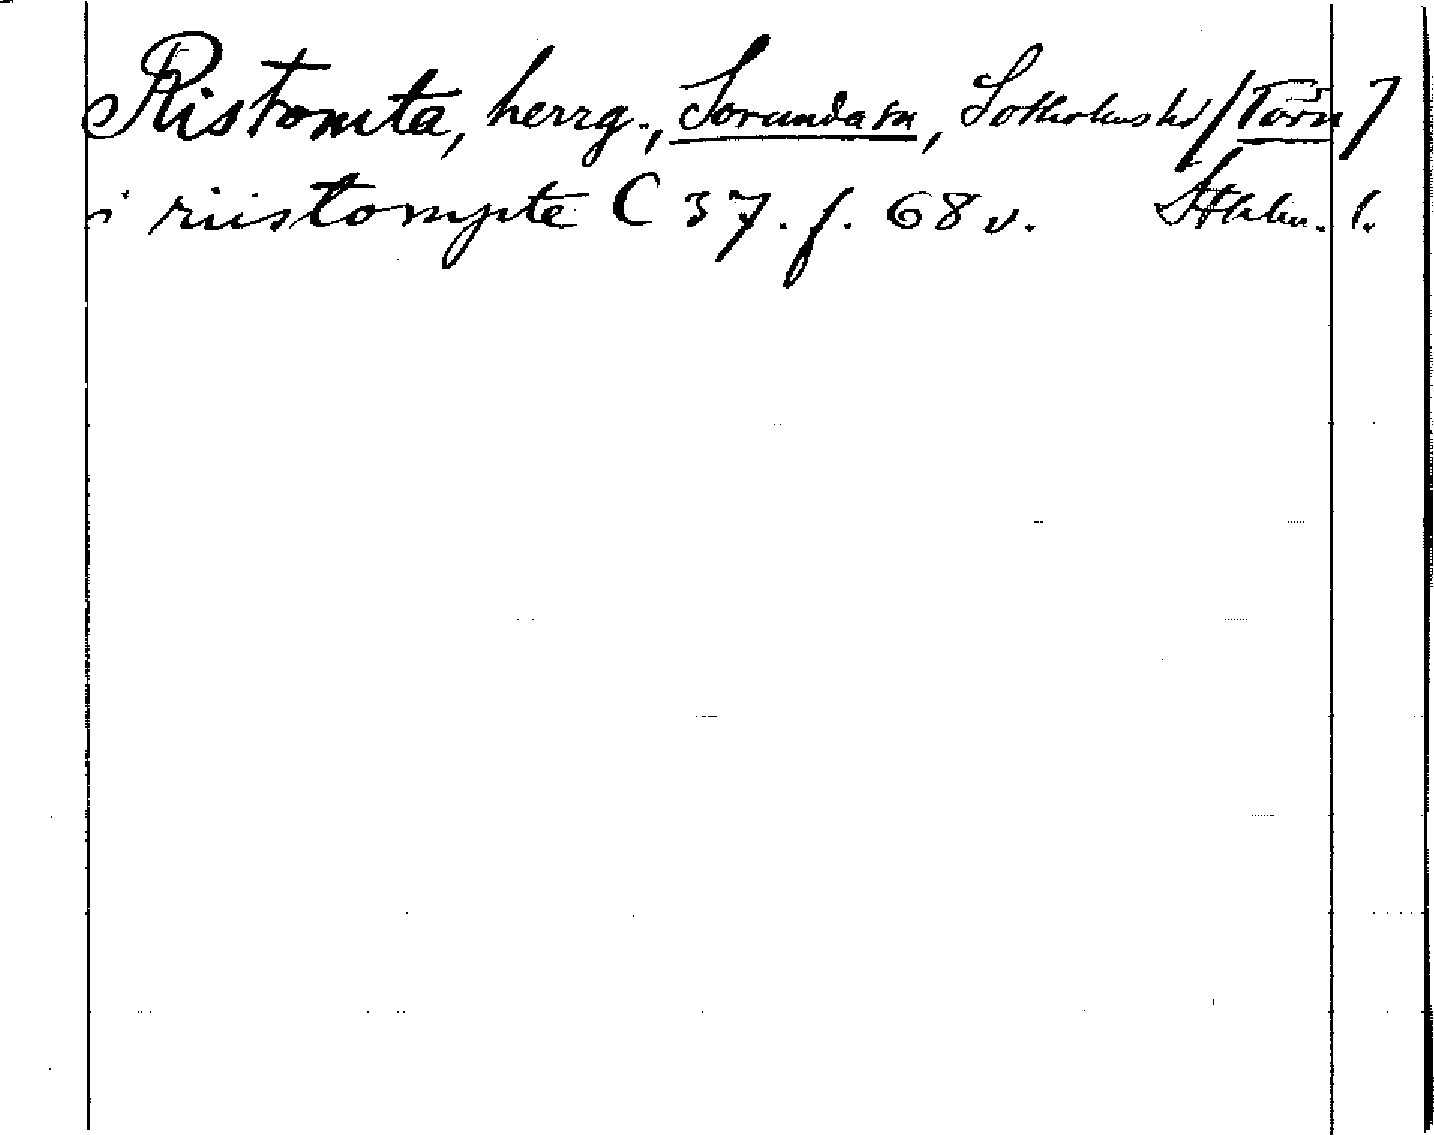 Ristomta, herrg., Sorunda sn, Sotholms hd /Törn/
i riistompte C 37. f. 68 v. Sthlm. l.